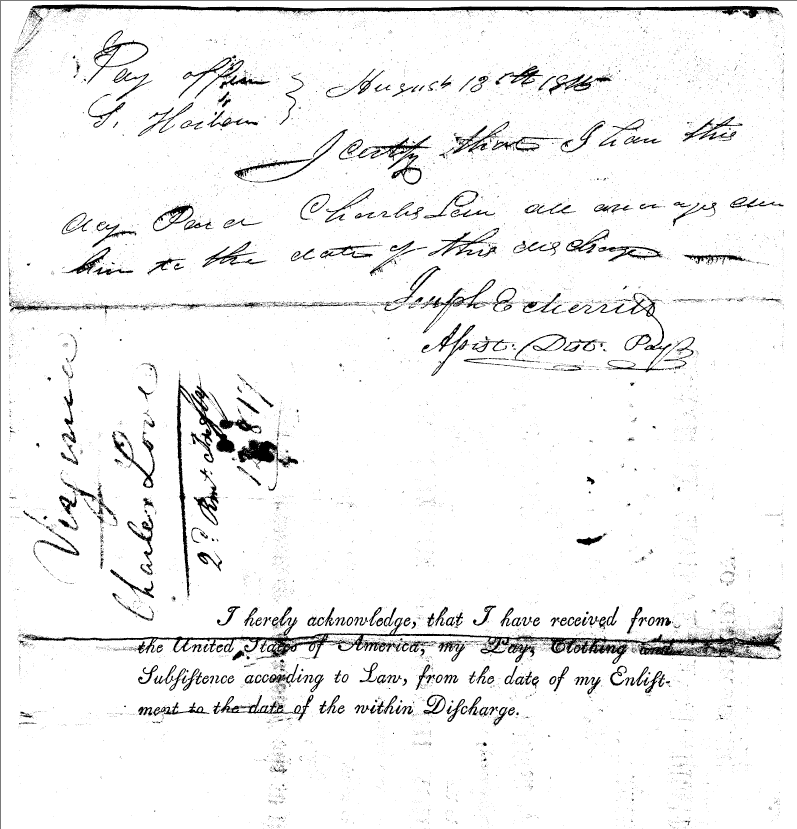 Pay office
S. Harbour } August 18th 1815
I certify that I have this
day Paid Charles Love all arrearages due
him to the date of this discharge
Joseph E Merritt
Assist. Dist. Pay
Virginia
Charles Love
2d Regt
1817
I hereby acknowledge, that I have received from
the United States of America, my Pay, Clothing and
Subsistence according to Law, from the date of my Enlist-
ment to the date of the within Discharge.